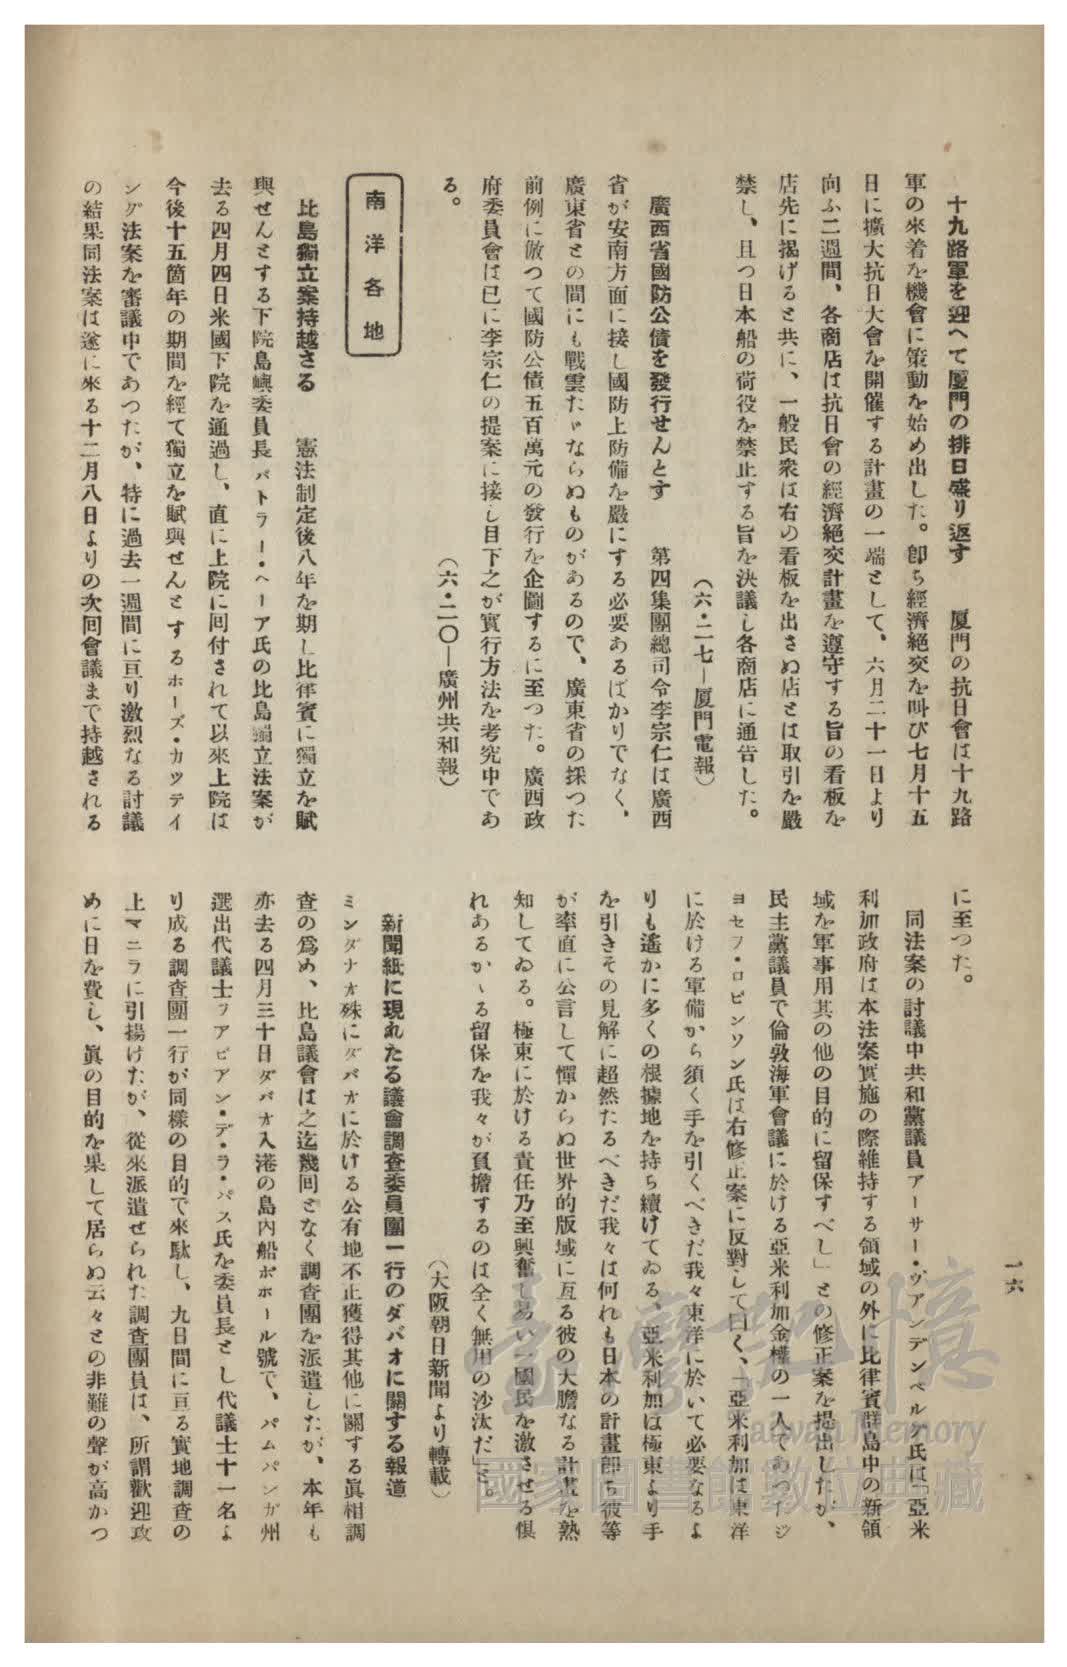 十九路軍を迎へて厦門の排日盛り返す　厦門の抗日會は十九路
軍の來着を機會に策動を始め出した。卽ち經濟絕交を叫び七月十五
日に擴大抗日大會を開催する計畫の一端として、六月二十一日より
向ふ二週間、各商店は抗日會の經濟絕交計畫を遵守する旨の看板を
店先に揭げると共に、一般民衆は右の看板を出さぬ店とは取引を嚴
禁し、且つ日本船の荷役を禁止する旨を決議し各商店に通告した。
（六・二七—厦門電報）
廣西省國防公債を發行せんとす　第四集團總司令李宗仁は廣西
省が安南方面に接し國防上防備を嚴にする必要あるばかりでなく、
廣東省との間にも戰雲たゞならぬものがあるので、廣東省の採つた
前例に倣つて國防公債五百萬元の發行を企圖するに至つた。廣西政
府委員會は已に李宗仁の提案に接し目下之が實行方法を考究中であ
る。
（六・二〇—廣州共和報）
南洋各地
比島獨立案持越さる　憲法制定後八年を期し比律賓に獨立を賦
與せんとする下院島嶼委員長バトラー・ヘーア氏の比島獨立法案が
去る四月四日米國下院を通過し、直に上院に回付されて以來上院は
今後十五箇年の期間を經て獨立を賦與せんとするホーズ・カッテイ
ング法案を審議中であつたが、特に過去一週間に亘り激烈なる討議
の結果同法案は遂に來る十二月八日よりの次回會議まで持越される
に至つた。
同法案の討議中共和黨議員アーサー・ヴアンデンベルグ氏は「亞米
利加政府は本法案實施の際維持する領域の外に比律賓群島中の新領
域を軍事用其の他の目的に留保すべし」との修正案を提出したが、
民主黨議員で倫敦海軍會議に於ける亞米利加全權の一人であつたジ
ヨセフ・ロビンソン氏は右修正案に反對して曰く、「亞米利加は東洋
に於ける軍備から須く手を引くべきだ我々東洋に於いて必要なるよ
りも遙かに多くの根據地を持ち續けてゐる、亞米利加は極東より手
を引きその見解に超然たるべきだ我々は何れも日本の計畫卽ち彼等
が率直に公言して憚からぬ世界的版域に亙る彼の大膽なる計畫を熟
知してゐる。極東に於ける責任乃至興奮し易い一國民を激させる惧
れあるかゝる留保を我々が負擔するのは全く無用の沙汰だ」と。
（大阪朝日新聞より轉載）
新聞紙に現れたる議會調査委員團一行のダバオに關する報道
ミンダナオ殊にダバオに於ける公有地不正獲得其他に關する眞相調
查の爲め、比島議會は之迄幾回となく調查團を派遣したが、本年も
亦去る四月三十日ダバオ入港の島內船ボホール號で、パムパンガ州
選出代議士フアビアン・デ・ラ・パス氏を委員長とし代議士十一名よ
り成る調查團一行が同樣の目的で來駄し、九日間に亘る實地調查の
上マニラに引揚けたが、從來派遣せられた調查團員は、所謂歡迎攻
めに日を費し、眞の目的を果して居らぬ云々との非難の聲が高かつ
一六
臺灣記憶
Taiwan Memory
國家圖書館數位典藏